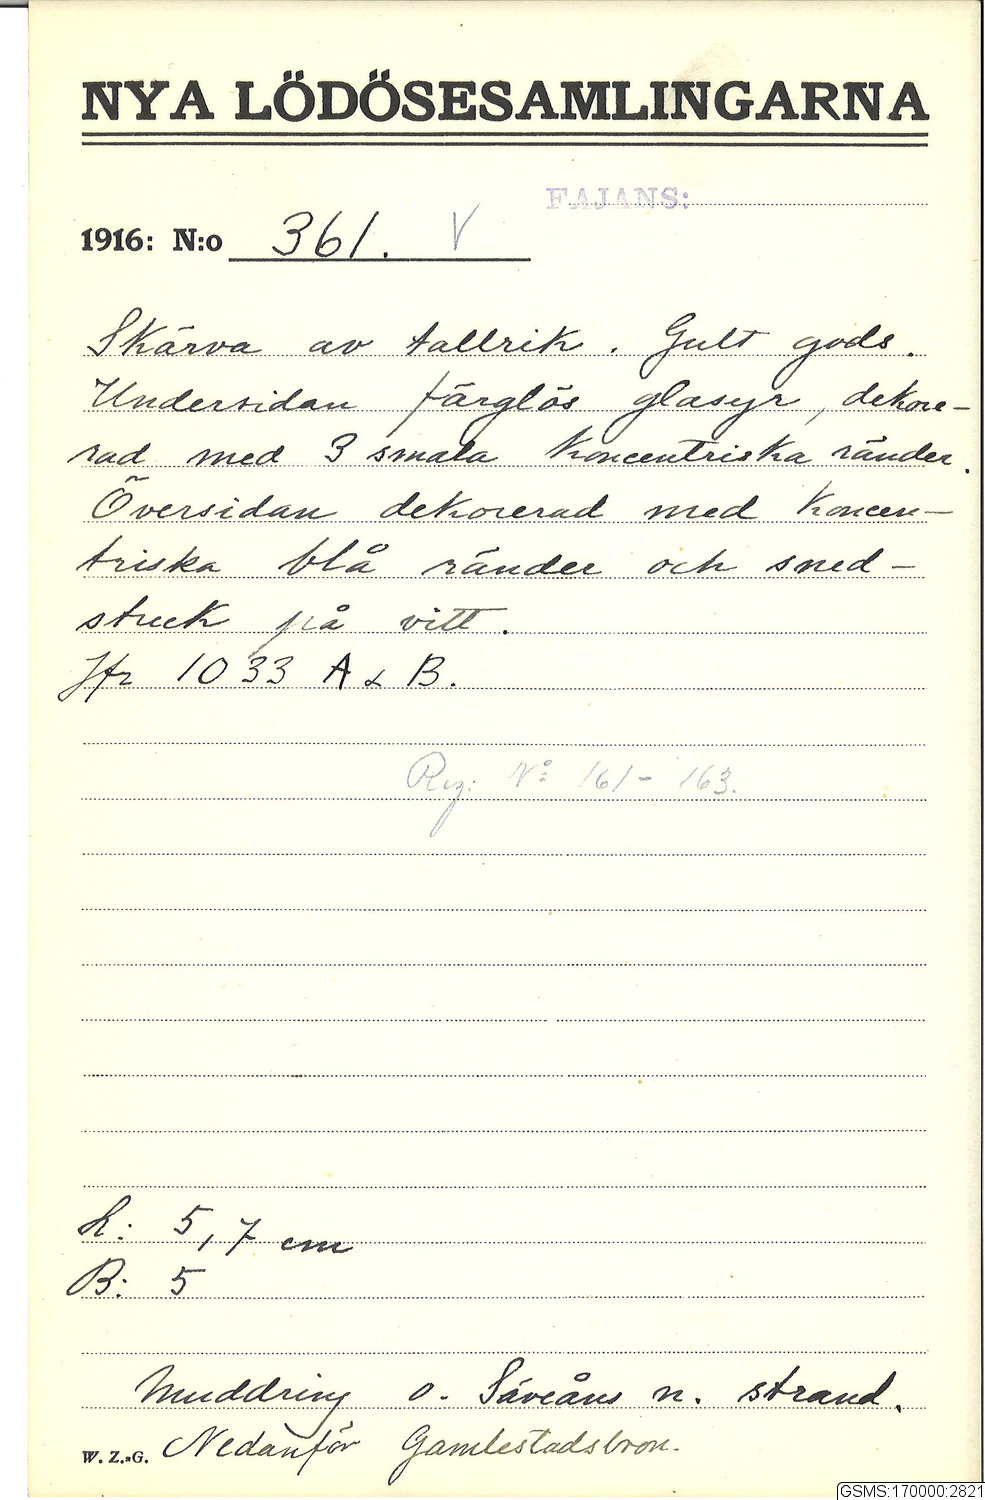 NYA LÖDÖSESAMLINGARNA
FAJANS:
1916: N:o 361. V
Skärva av tallrik. Gult gods.
Undersidan färglös glasyr, dekore-
rad med 3 smala koncentriska ränder.
Översidan dekorerad med koncen-
triska blå ränder och sned-
streck på vitt.
Jfr 1033 A & B.
Reg: No: 161-163.
L: 5,7 cm
B: 5
Muddring o. Säveåns n. strand.
Nedanför Gamlestadsbron.
W. Z.-G.
GSMS:170000:2821